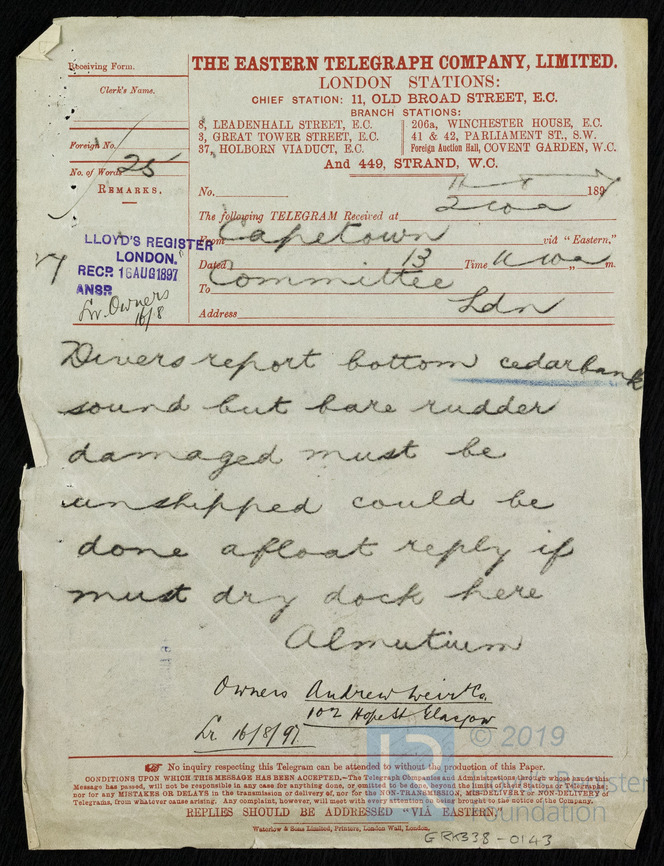 Receiving Form.
THE EASTERN TELEGRAPH COMPANY, LIMITED.
LONDON STATIONS:
Clerk's Name.
CHIEF STATION: 11, OLD BROAD STREET, E.C.
BRANCH STATIONS:
8, LEADENHALL STREET, E.C. 206a, WINCHESTER HOUSE, E.C.
3, GREAT TOWER STREET, E.C. 41 & 42, PARLIAMENT ST., S.W.
37, HOLBORN VIADUCT, E.C. Foreign Auction Hall, COVENT GARDEN, W.C.
And 449, STRAND, W.C.
Foreign No.
No. of Words 25
REMARKS.
No. 1897
The following TELEGRAM Received at
From Capetown via "Eastern."
Dated 13 Time m.
To Committee
Address Ldn
LLOYD'S REGISTER
LONDON.
RECD 16 AUG 1897
ANSR
Lr. Owners
16/8
Divers report bottom cedarbank
sound but bare rudder
damaged must be
unshipped could be
done afloat reply if
must dry dock here
Almutium
Owners Andrew Weir & Co.
102 Hope St Glasgow
Lr. 16/8/97
© 2019
No inquiry respecting this Telegram can be attended to without the production of this Paper.
CONDITIONS UPON WHICH THIS MESSAGE HAS BEEN ACCEPTED.—The Telegraph Companies and Administrations through whose hands this
Message has passed, will not be responsible in any case for anything done, or omitted to be done, beyond the limits of their Stations or Telegraphs,
nor for any MISTAKES OR DELAYS in the transmission or delivery of, nor for the NON-TRANSMISSION, MIS-DELIVERY or NON-DELIVERY of
Telegrams, from whatever cause arising. Any complaint, however, will meet with every attention on being brought to the notice of the Company.
REPLIES SHOULD BE ADDRESSED "VIÂ EASTERN."
Waterlow & Sons Limited, Printers, London Wall, London.
Foundation
GRK338-0143